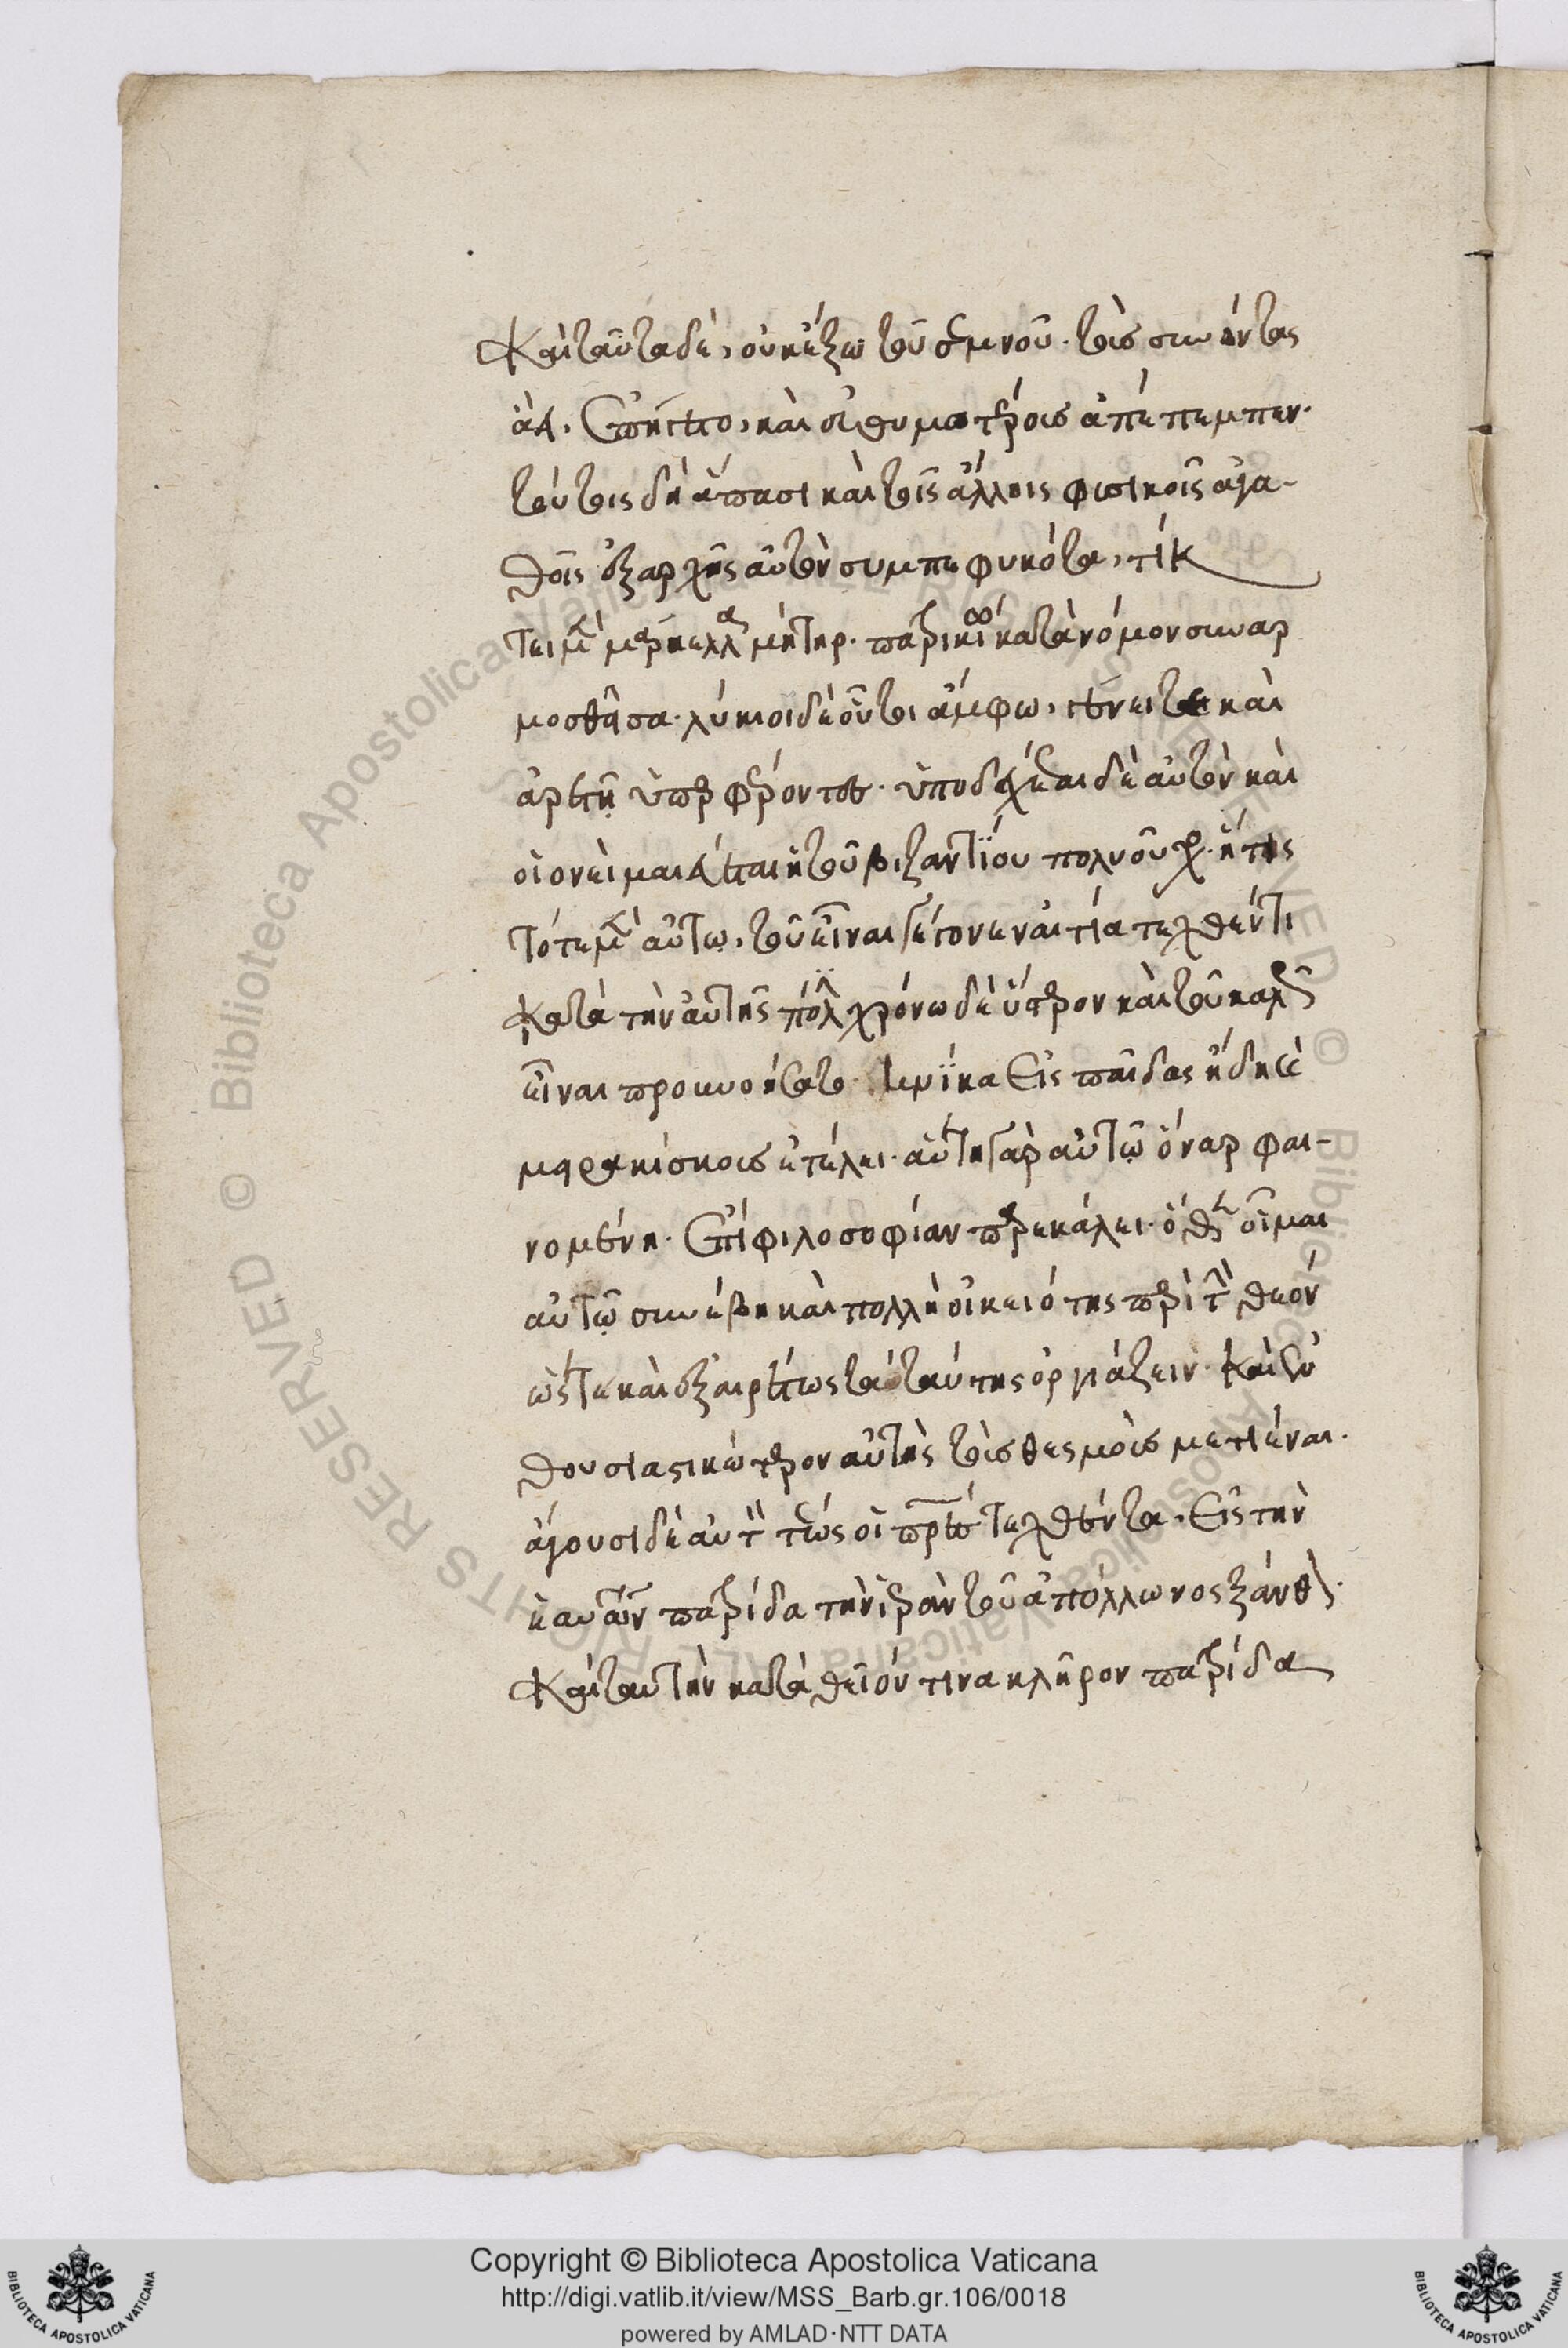 Καὶ ταῦτα δὲ, οὐκ ἔξω τοῦ σεμνοῦ. τοὺς συνόντας
ἀεὶ. ἐπήγετο, καὶ εὐθυμοτέρους ἀπέπεμπεν.
τούτοις δὴ ἅπασι καὶ τοῖς ἄλλοις φυσικοῖς ἀγα-
θοῖς ἐξ ἀρχῆς αὐτὸν συμπεφυκότα, τίκ
τει μὲν μαρκέλλα μήτηρ. πατρικίῳ κατὰ νόμον συναρ
μοσθεῖσα. λύκιοι δὲ οὗτοι ἄμφω, γένει τε καὶ
ἀρετῇ ὑπερφέροντες. ὑποδέχεται δὲ αὐτὸν καὶ
οἱονεὶ μαιεύεται ἡ τοῦ βυζαντίου πολιοῦχος. ἥτις
τότε μὲν αὐτῷ, τοῦ εἶναι γέγονεν αἰτία τεχθέντι
κατὰ τὴν αὐτῆς πόλιν χρόνῳ δὲ ὕστερον καὶ τοῦ καλῶς
εἶναι προυνοήσατο. ἡνίκα εἰς παῖδας ἤδη καὶ
μειρακίσκους ἐτέλει. αὕτη γὰρ αὐτῷ ὄναρ φαι-
νομένη. ἐπὶ φιλοσοφίαν παρεκάλει. ὅθεν οἶμαι
αὐτῷ συνέβη καὶ πολλὴ οἰκειότης περὶ τὴν θεόν
ὥστε καὶ ἐξαιρέτως τὰ ταύτης ὀργιάζειν. καὶ ἐν
θουσιαστικώτερον αὐτῆς τοὺς θεσμοὺς μετιέναι.
ἄγουσι δὲ αὐτὸν τέως οἱ πατέρες τεχθέντα. εἰς τὴν
ἑαυτῶν πατρίδα τὴν ἱερὰν τοῦ ἀπόλλωνος ξάνθον.
Καὶ ταύτην κατὰ θεῖόν τινα κλῆρον πατρίδα
Copyright © Biblioteca Apostolica Vaticana
http://digi.vatlib.it/view/MSS_Barb.gr.106/0018
powered by AMLAD·NTT DATA